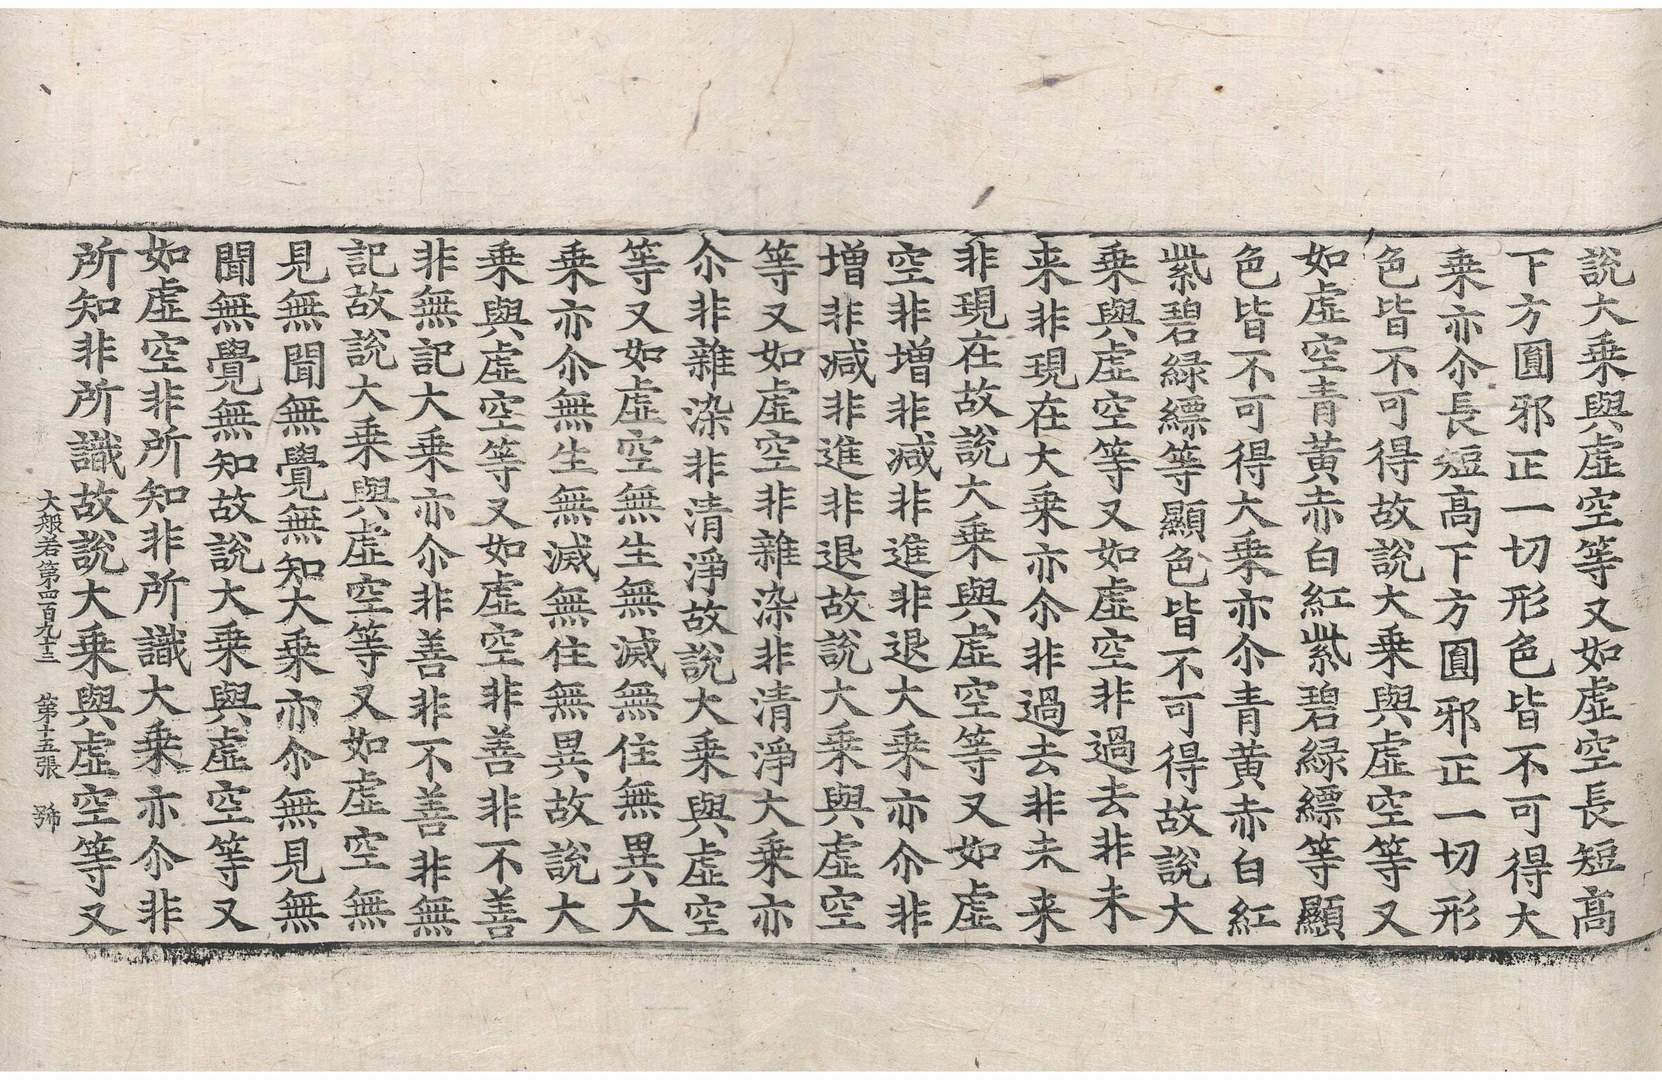 說大乗與虛空等又如虛空長短髙
下方圎邪正一切形色皆不可得大
乗亦尒長短髙下方圎邪正一切形
色皆不可得故說大乗與虛空等又
如虛空青黄赤白紅紫碧緑縹等顯
色皆不可得大乗亦尒青黄赤白紅
紫碧緑縹等顯色皆不可得故說大
乗與虛空等又如虛空非過去非未
来非現在大乗亦尒非過去非未来
非現在故說大乗與虛空等又如虛
空非増非减非進非退大乗亦尒非
増非减非進非退故說大乗與虛空
等又如虛空非雜染非清淨大乗亦
尒非雜染非清淨故說大乗與虛空
等又如虛空無生無滅無住無異大
乗亦尒無生無滅無住無異故說大
乗與虛空等又如虛空非善非不善
非無記大乗亦尒非善非不善非無
記故說大乗與虛空等又如虛空無
見無聞無覺無知大乗亦尒無見無
聞無覺無知故說大乗與虛空等又
如虛空非所知非所識大乗亦尒非
所知非所識故說大乗與虛空等又
大般若第四百九十三 第十五張 號